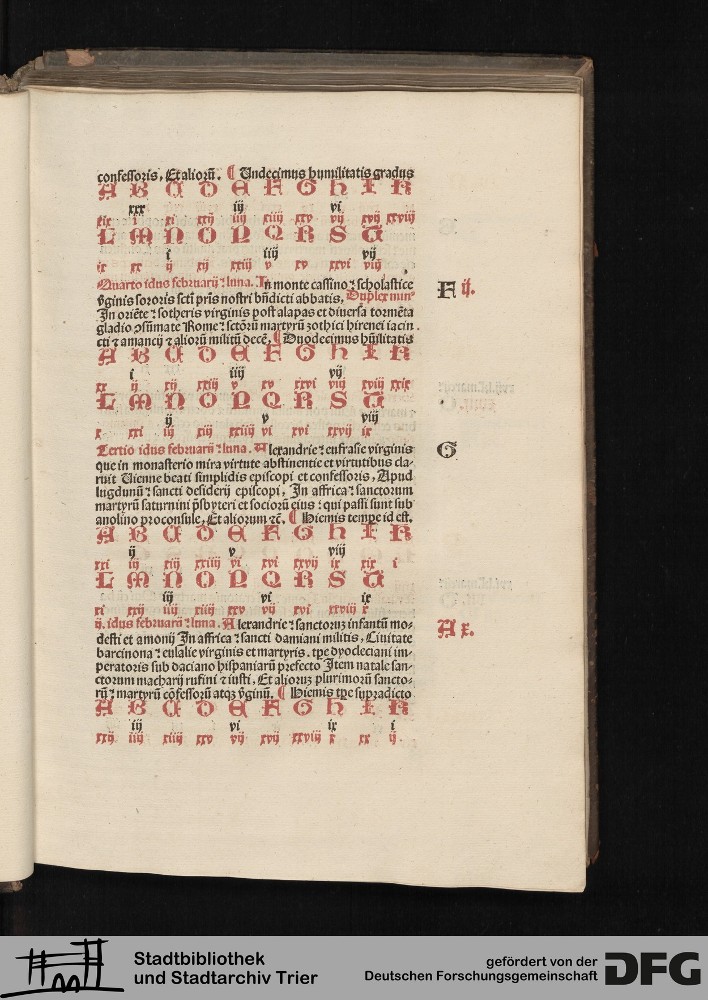 confessoris, Et alioꝝ. ¶ Undecimus humilitatis gradus
A B C D E F G H I K
xxx iij vi
xix i xi xxij iiij xiiij xxv vij xvij xxviij
L M N O P Q R S T
i iiij vij
ix xx ij xij xxiij v xv xxvi viij
Quarto idus februarij ⁊ luna. In monte cassino ⁊ scholastice F ij.
v̄ginis sororis sctī pr̄is nostri bn̄dicti abbatis, Duplex minꝰ
In oriēte ⁊ sotheris virginis post alapas et diuersa tormēta
gladio ꝯsūmate Rome ⁊ sctōrū martyrū zothici hirenei iacin
cti ⁊ amancij ⁊ aliorū militū decē, ¶ Duodecimus hūilitatis
A B C D E F G H I K
i iiij vij
xx ij xij xxiij v xv xxvi viij xviij xxix
L M N O P Q R S T
ij v viij
x xxi iij xiij xxiiij vi xvi xxvij ix
Tertio idus februarij ⁊ luna. Alexandrie ⁊ eufrasie virginis G
que in monasterio mira virtute abstinentie et virtutibus cla-
ruit Uienne beati simplidis episcopi et confessoris, Apud
lugdunū ⁊ sancti desiderij episcopi, In affrica ⁊ sanctorum
martyrū saturnini p̄sbyteri et sociorū eius ⁊ qui passi sunt sub
anolino proconsule, Et aliorum ⁊c̄. ¶ Hiemis tempe id est.
A B C D E F G H I K
ij v viij
xxi iij xiij xxiiij vi xvi xxvij ix xix i
L M N O P Q R S T
iij vi ix
xi xxij iiij xiiij xxv vij xvi xxviij x
ij. idus februarij ⁊ luna. Alexandrie ⁊ sanctoruꝫ infantū mo- A x.
desti et amonij In affrica ⁊ sancti damiani militis, Ciuitate
barcinona ⁊ eulalie virginis et martyris. tꝑe dyocleciani im-
peratoris sub daciano hispaniarū prefecto Item natale san-
ctorum macharij rufini ⁊ iusti, Et alioruꝫ plurimorū sancto-
rū ⁊ martyrū cōfessorū atqꝫ v̄ginū. ¶ Hiemis tꝑe supradicto
A B C D E F G H I K
iij vi ix i
xxij iiij xiiij xxv vij xvij xxviij x xx ij.
Stadtbibliothek
und Stadtarchiv Trier
gefördert von der
Deutschen Forschungsgemeinschaft DFG